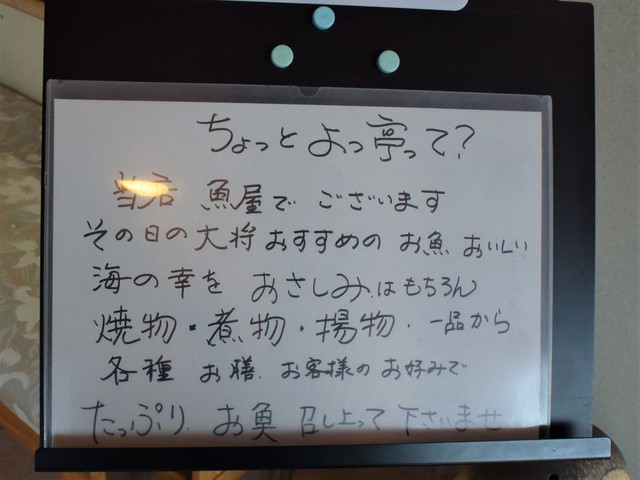 ちょっとよっ亭って?
当店 魚屋でございます
その日の大将おすすめのお魚おいしい
海の幸をおさしみはもちろん
焼物・煮物・揚物・一品から
各種お膳.お客様のお好みで
たっぷり.お魚召し上って下さいませ